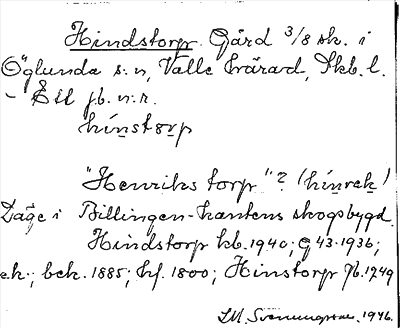 Hindstorp. Gård 3/8 sk. i
Öglunda s:n, Valle härad, Skb. l.
- Ett jb. n:r.
hínstorp
"Henriks torp"? (hínrek)
Läge i Billingen-kantens skogsbygd.
Hindstorp kb. 1940; G 43. 1936;
e.k.; bek. 1885; hf. 1800; Hinstorp Jb. 1249
1946.